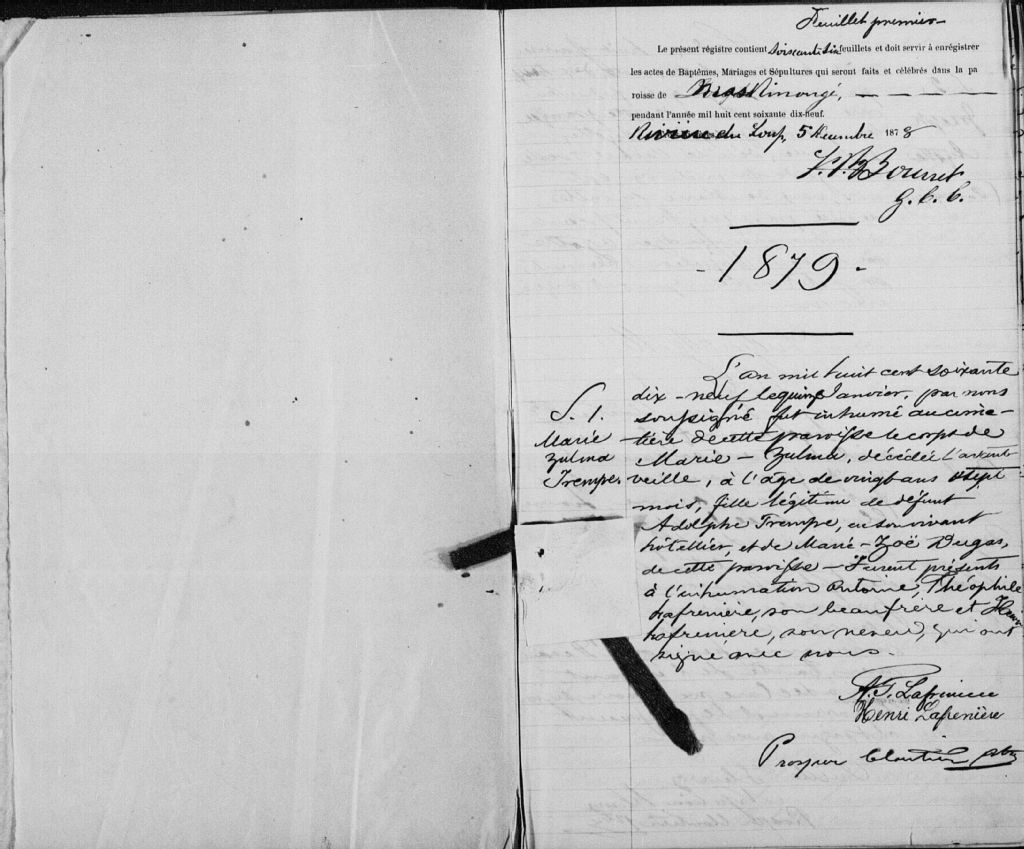 Feuillet premier
Le présent régistre contient soixante six feuillets et doit servir à enrégistrer
les actes de Baptêmes, Mariages et Sépultures qui seront faits et célébrés dans la pa
roisse de Maskinongé,
pendant l'année mil huit cent soixante dix-neuf.
Rivière du Loup, 5 Décembre 1878
Bourret
G. C. C.
- 1879 -
L'an mil huit cent soixante
dix-neuf le quinze Janvier, par nous
soussigné fut inhumé au cime-
S. 1.
Marie
Zulma
Trempe.
-tière de cette paroisse le corps de
Marie-Zulma, décédée l'avant
veille, à l'âge de vingt ans sept
mois, fille légitime de défunt
Adolphe Trempe, en son vivant
hôtellier, et de Marie-Zoë Dugas,
de cette paroisse - Furent présents
à l'inhumation Antoine, Théophile
Lafrenière, son beaufrère et Henri
Lafrenière, son neveu, qui ont
signé avec nous.
A. T. Lafrenière
Henri Lafrenière
Prosper Cloutier Ptre